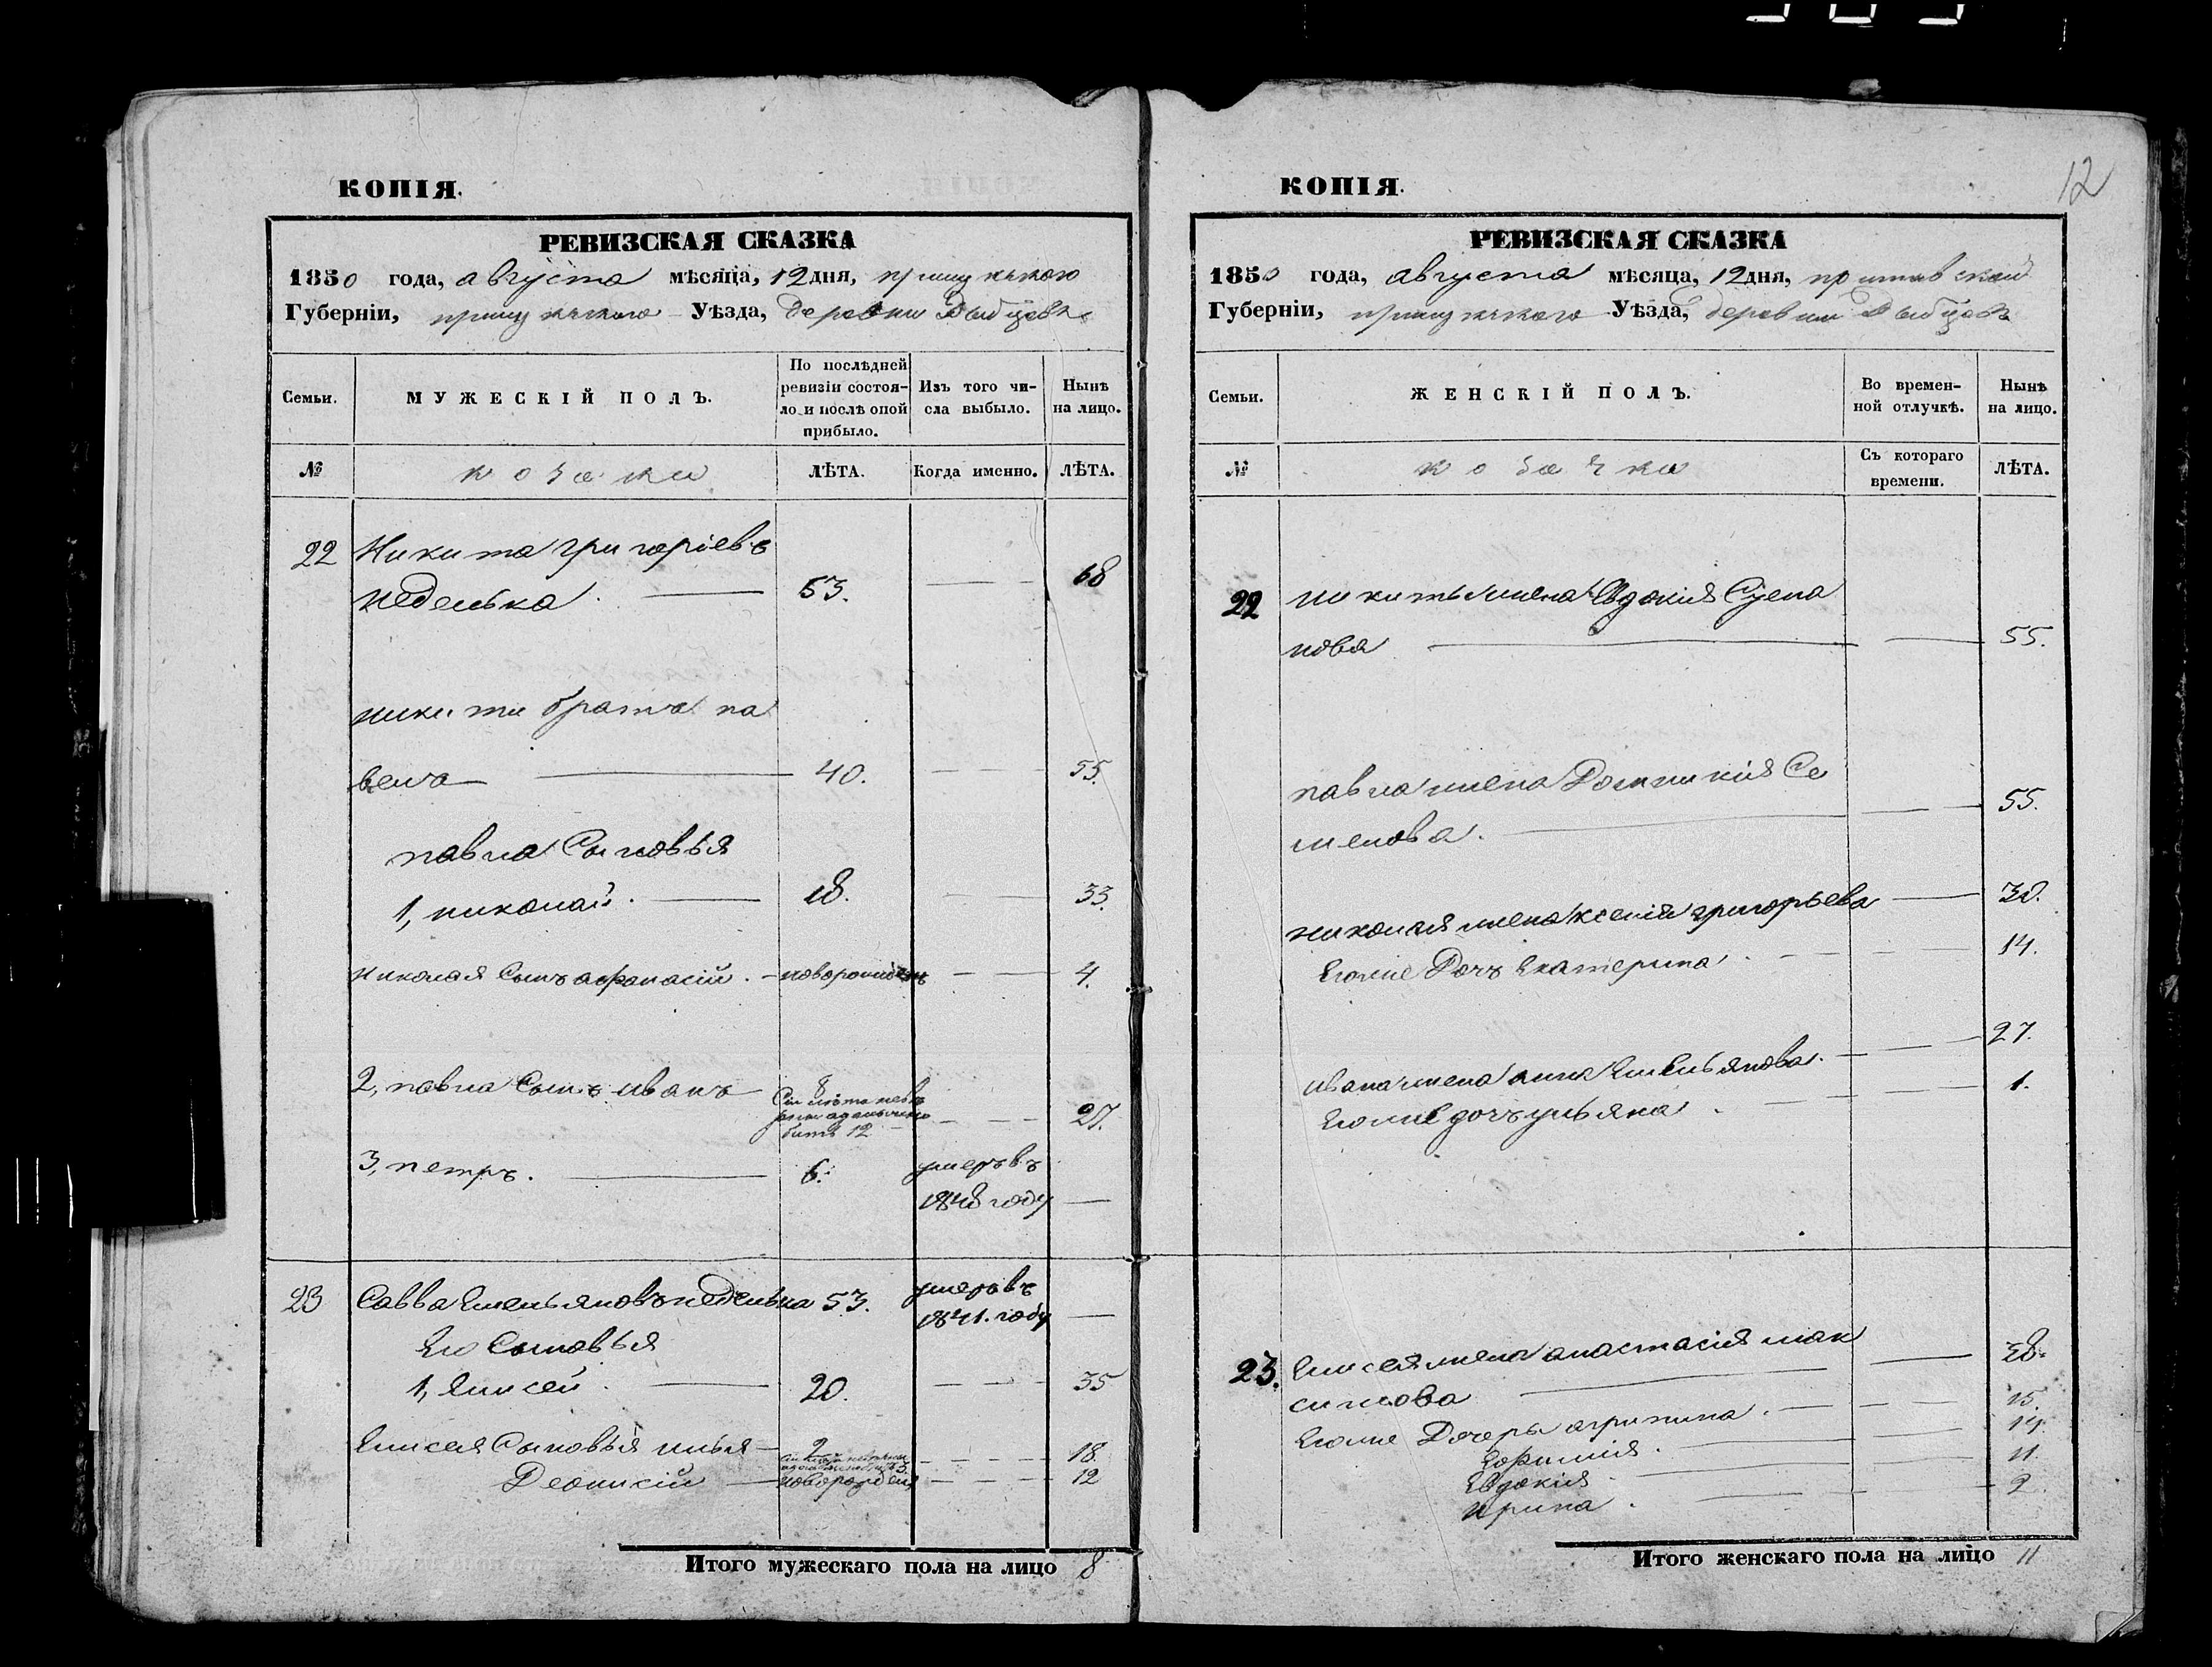 12
КОПІЯ.
РЕВИЗСКАЯ СКАЗКА
1850 года, августа мѣсяца, 12 дня,
Губерніи, Уѣзда, деревни Дыбцовъ
Семьи. МУЖЕСКІЙ ПОЛЪ. По послѣдней ревизіи состояло и послѣ оной прибыло. Изъ того числа выбыло. Нынѣ на лицо.
№ козаки ЛѢТА. Когда именно. ЛѢТА.
22 Никита григоріевъ
неделька. 53. 68
никиты братъ па
велъ 40. 55.
павла Сыновья
1, николай. 18. 33.
николая Сынъ афанасій. новорожденъ 4.
2, павла Сынъ иванъ 8
бытъ 12 27.
3, петръ. 6. умеръ въ
1848 году
23 Савва Емельяновъ неделька 53. умеръ въ
1841. году
Его Сыновья
1, Елисей. 20. 35
Елисея Сыновья илья 2 18.
Деонисій новорожденъ 12
Итого мужескаго пола на лицо 8
КОПІЯ.
РЕВИЗСКАЯ СКАЗКА
1850 года, августа мѣсяца, 12 дня,
Губерніи, Уѣзда, деревни Дыбцовъ
Семьи. ЖЕНСКІЙ ПОЛЪ. Во временной отлучкѣ. Нынѣ на лицо.
№ козачки Съ котораго времени. ЛѢТА.
22 никиты жена Евдокія Степа
нова 55.
павла жена Домникія Се
менова. 55.
николая жена ксенія григорьева 30.
Егоже Дочъ Екатерина 14.
ивана жена анна Емельянова. 27.
Егоже дочъ ульяна. 1.
23. Елисея жена анастасія мак
симова 38.
Егоже Дочеры агрипина. 15.
Ефимія. 14.
Евдокія 11.
ирина. 9
Итого женскаго пола на лицо 11